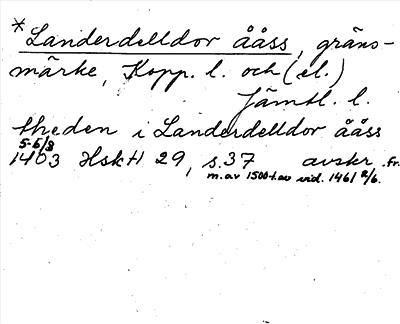 * Landerdelldor åås, gräns-
märke, Kopp. l. och (el.)
Jämtl. l.
theden i Landerdelldor åås
5-5/8
1403 Hsk H 29, s.37 avskr. fr.
m. av 1500-t. av vid. 1461 2/6.